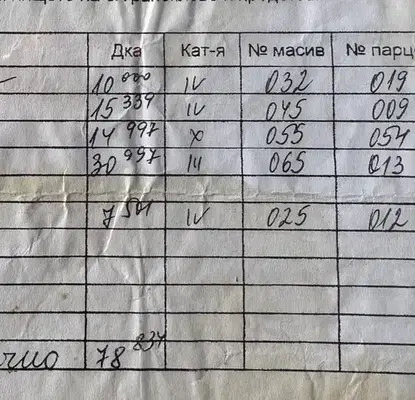 Дка Кат-я № масив № парц
10 000 IV 032 019
15 339 IV 045 009
14 997 X 055 054
30 997 III 065 013
7 501 IV 025 012
78 834